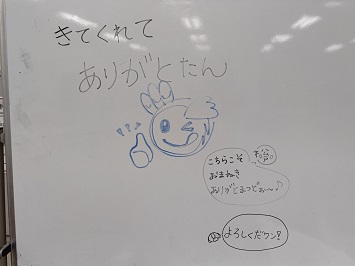 きてくれて
ありがとたん
こちらこそ
おまねき
ありがとまつどぉ〜♪
よろしくだワン!